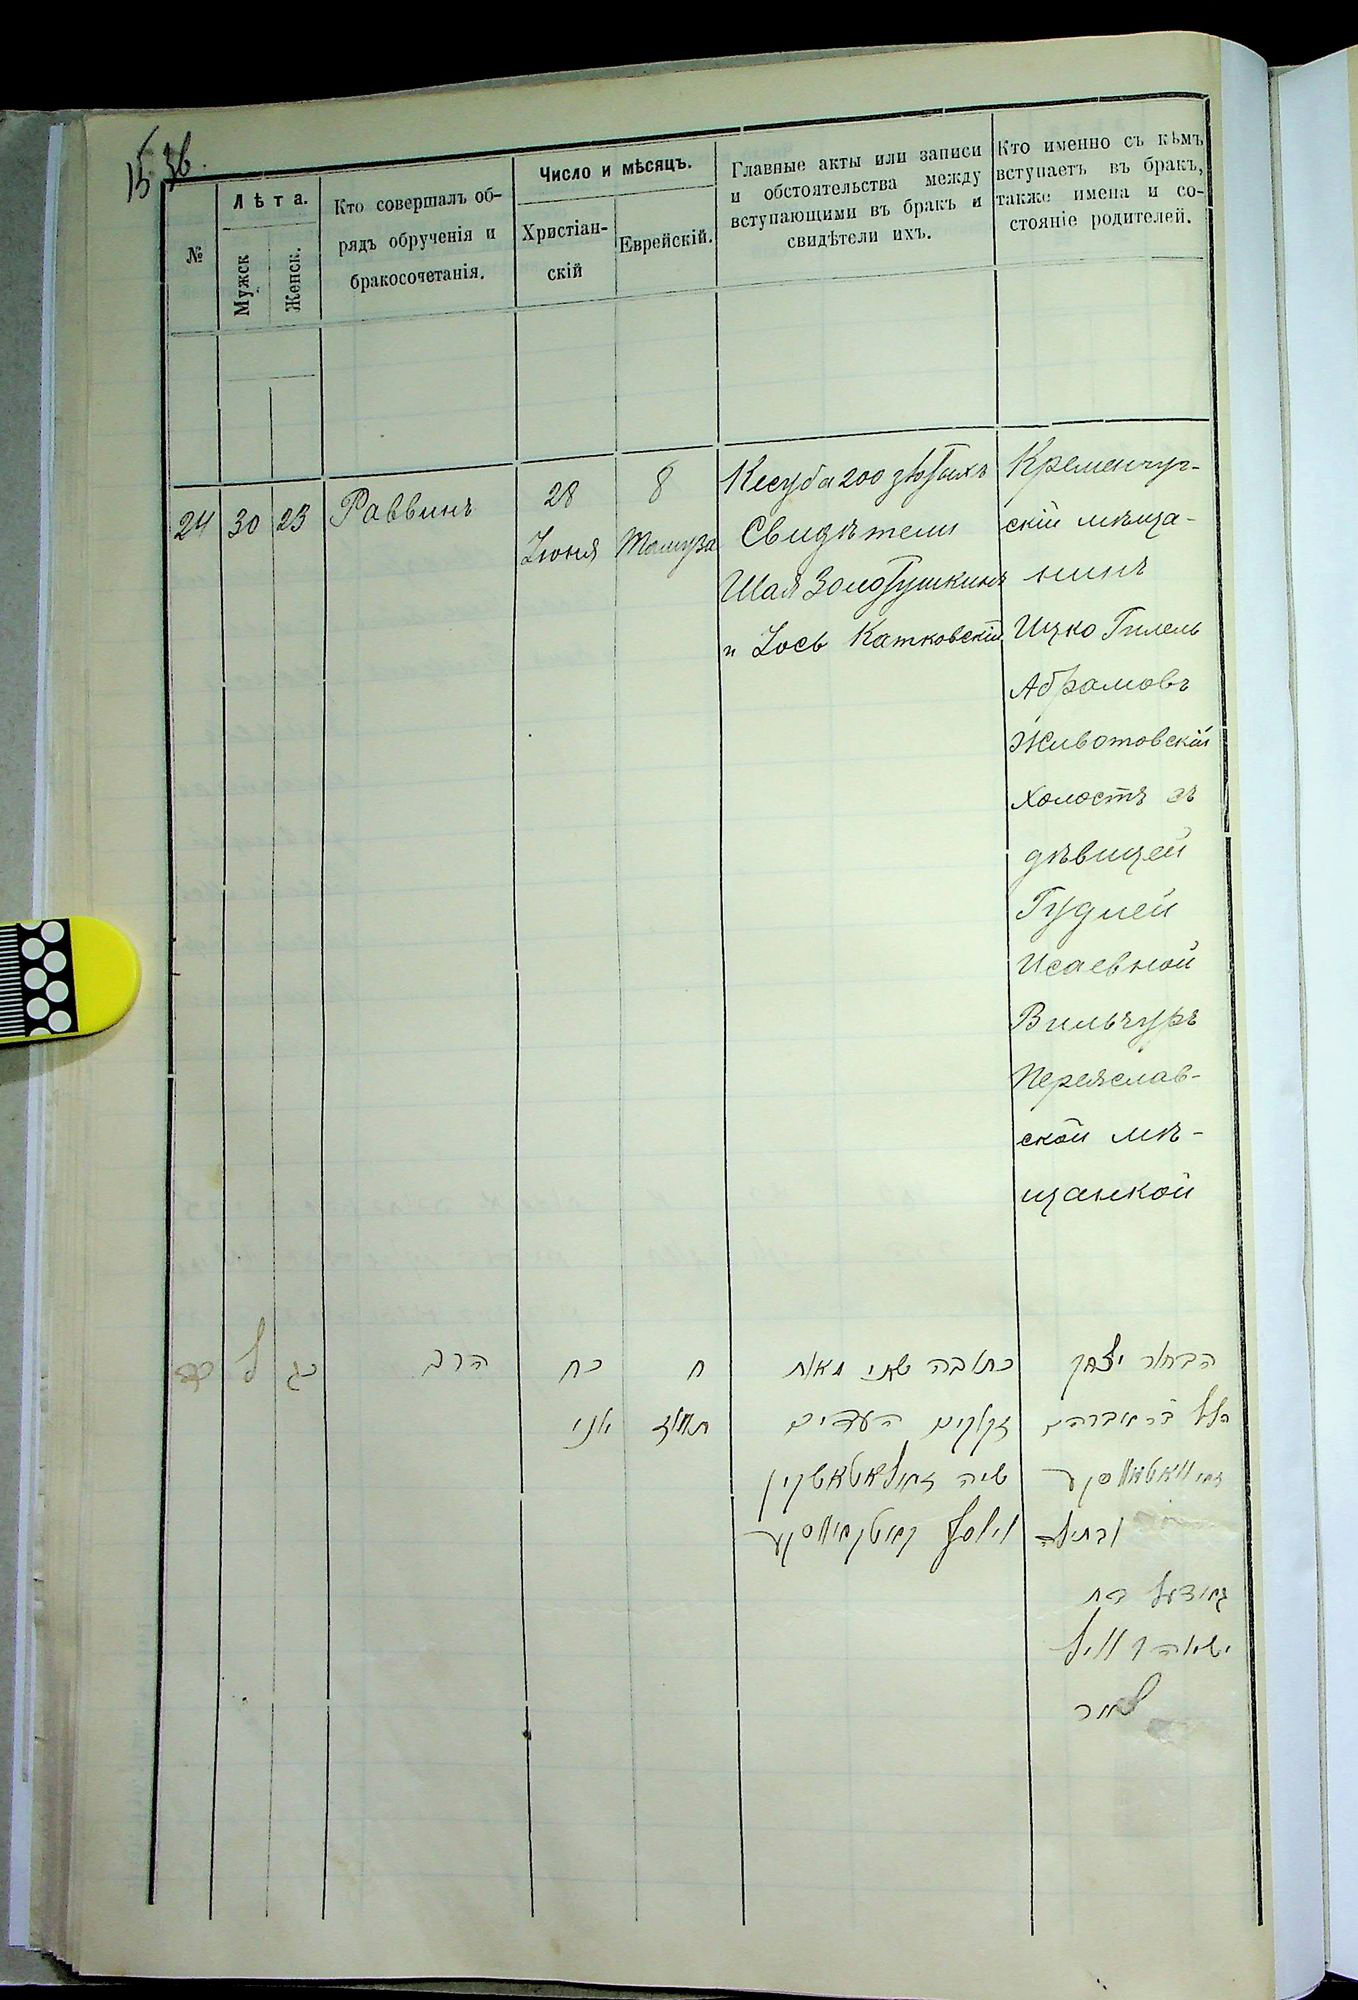 15 36.
№
Лѣта.
Мужск
Женск.
Кто совершалъ об-
рядъ обрученія и
бракосочетанія.
Число и мѣсяцъ.
Христіан-
скій
Еврейскій.
Главные акты или записи
и обстоятельства между
вступающими въ бракъ и
свидѣтели ихъ.
Кто именно съ кѣмъ
вступаетъ въ бракъ,
также имена и со-
стояніе родителей.
24
30
23
Раввинъ
28
Іюня
8
Тамуза
Кесуба 200 злотыхъ
Свидѣтели
Шая Золотушкинъ
и Іось Катковскій
Кременчуг-
скій мѣща-
нинъ
Ицко Гилель
Абрамовъ
Животовскій
холостъ съ
дѣвицей
Гудлей
Исаевной
Вильчуръ
Переяслав-
ской мѣ-
щанкой
כד
ל
כג
הרב
כח
יוני
ח
תמוז
כתובה שתי מאות
זקוקים העדים
שיה זאלאטאשקין
ויוסף קאטקאווסקי
הבחור יצחק
הלל בר אברהם
זיוואטאווסקי
ובתולה
בת
ישעיה וויל